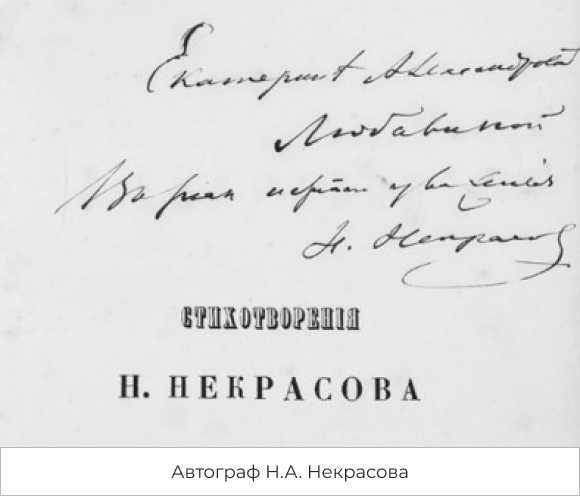 Екатеринѣ Александровнѣ
Любавиной
Въ знак уваженія
Н. Некрасов
СТИХОТВОРЕНІЯ
Н. НЕКРАСОВА
Автограф Н.А. Некрасова